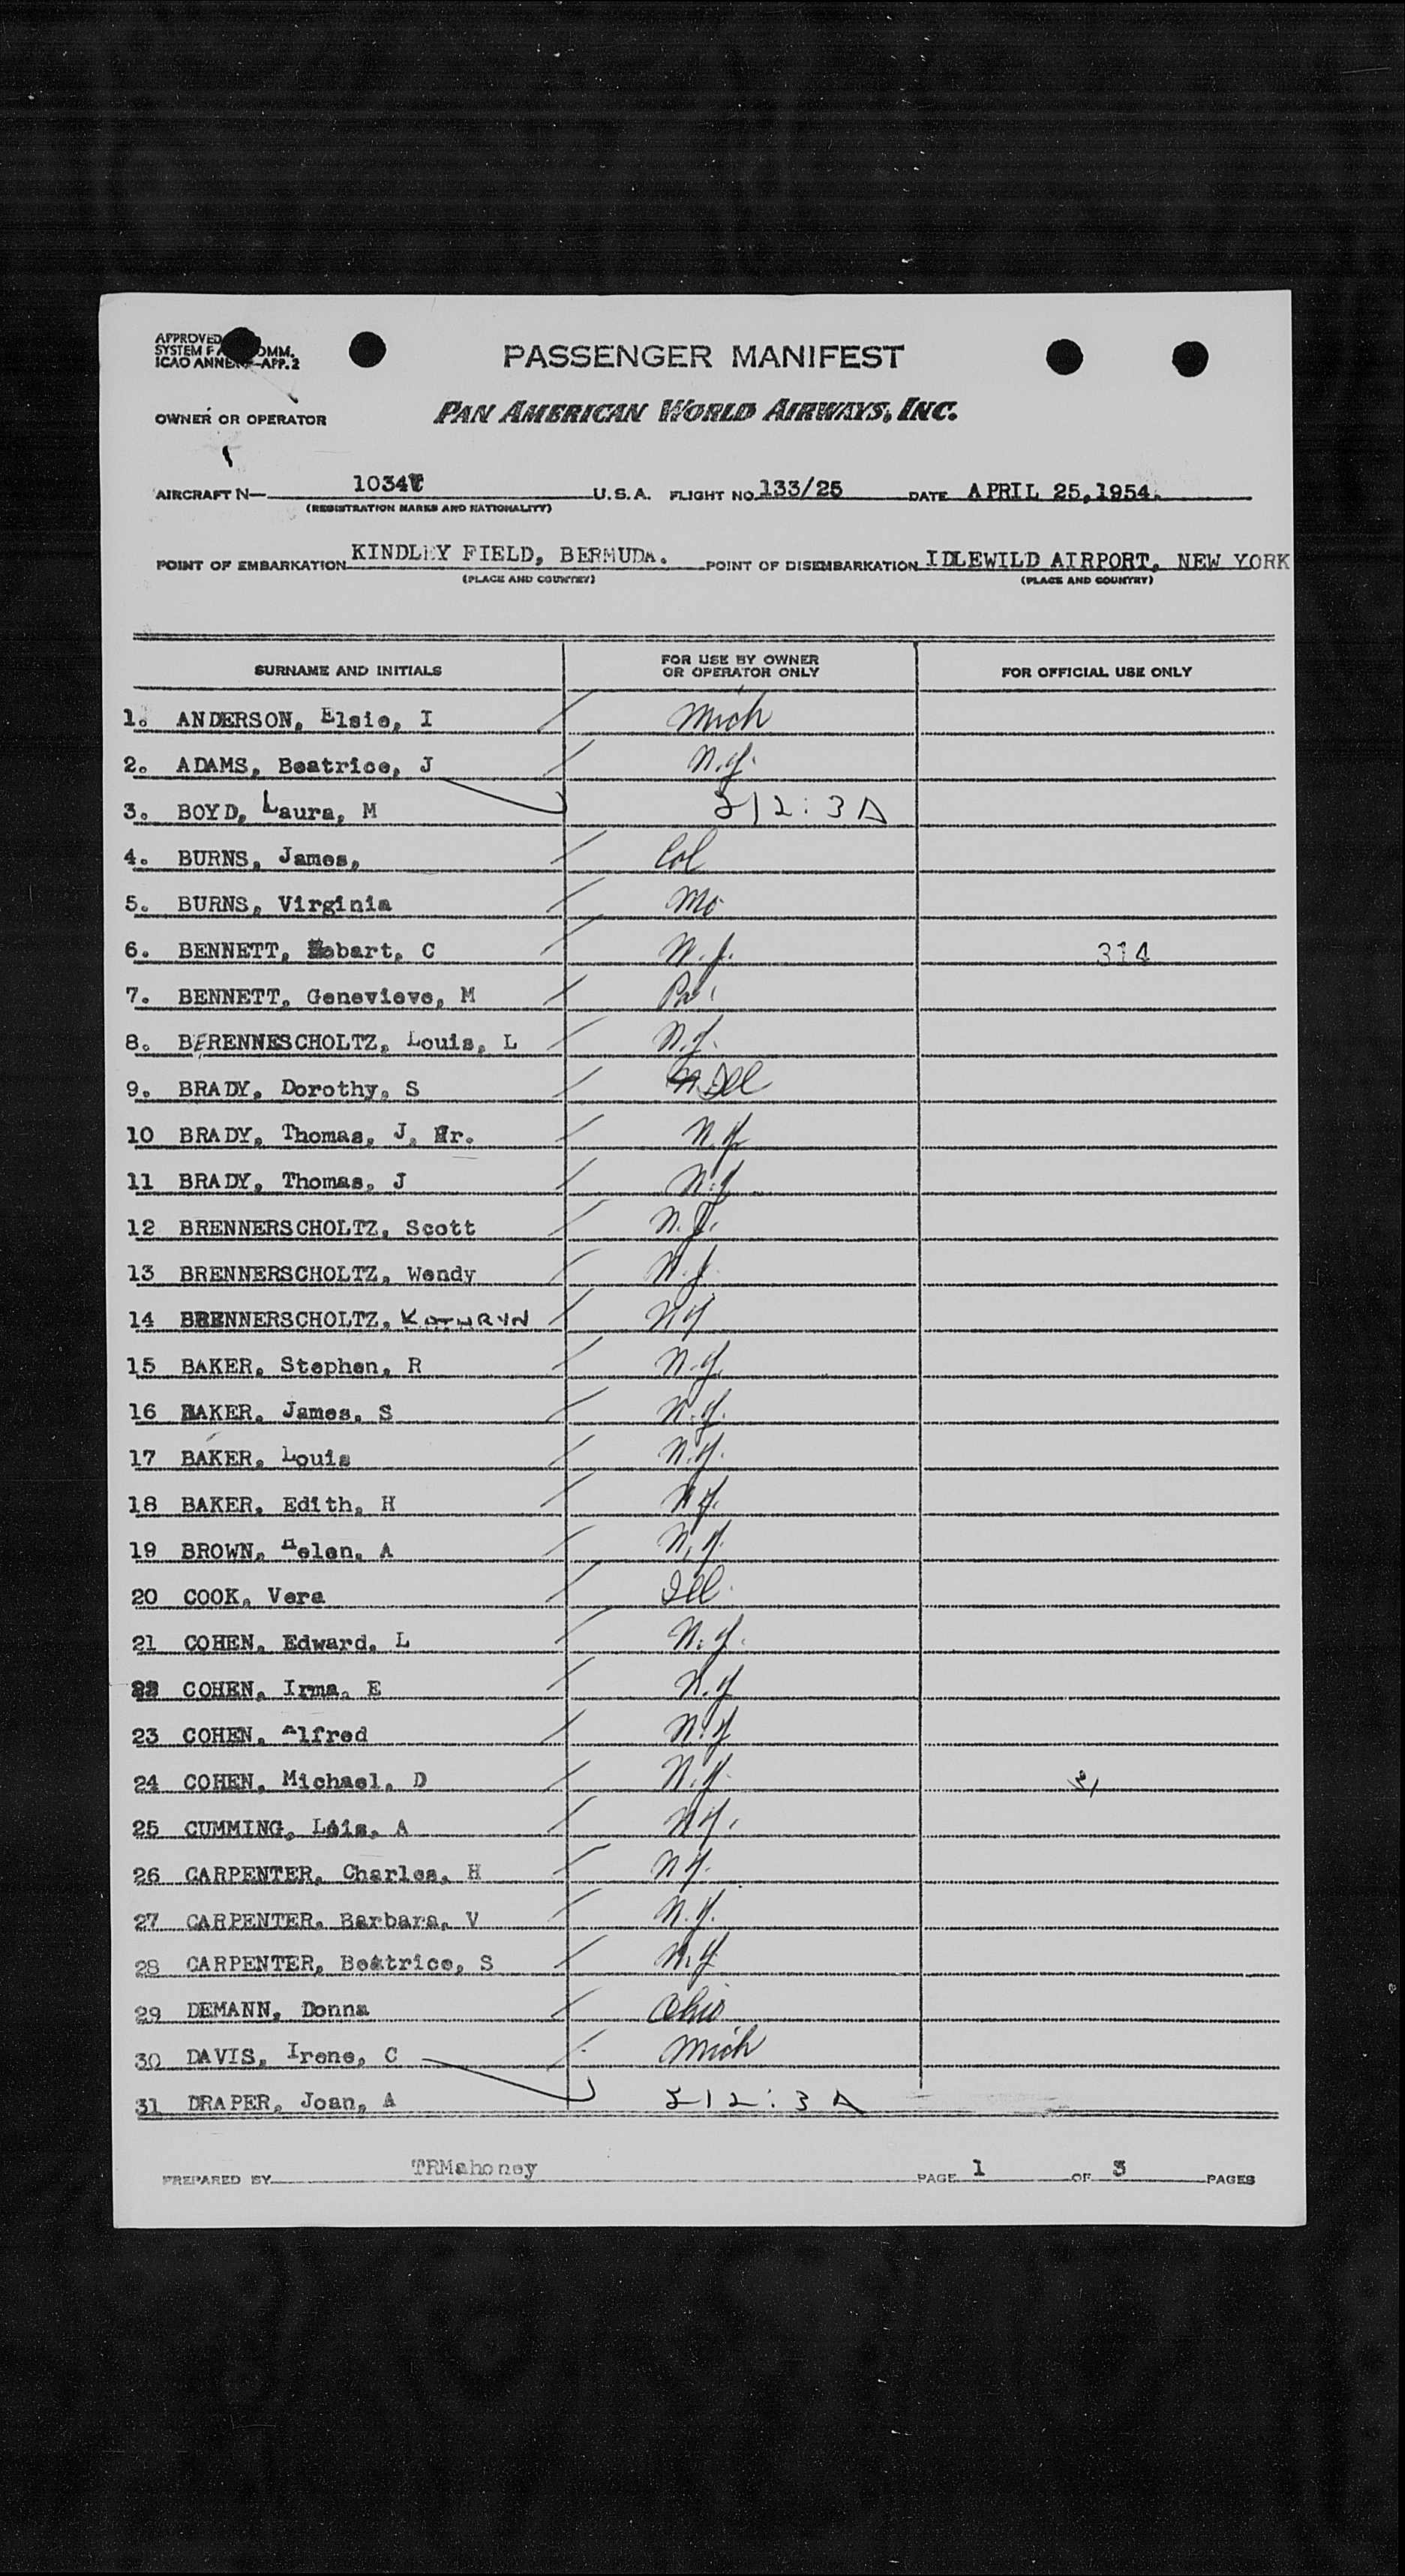 PASSENGER MANIFEST
APPROVED
SYSTEM COMM.
ICAO ANNEX —APP.2
OWNER OR OPERATOR PAN AMERICAN WORLD AIRWAYS, INC.
AIRCRAFT N— 1034V U.S.A. FLIGHT NO. 133/25 DATE APRIL 25,1954.
(REGISTRATION MARKS AND NATIONALITY)
POINT OF EMBARKATION KINDLEY FIELD, BERMUDA. POINT OF DISEMBARKATION IDLEWILD AIRPORT, NEW YORK
(PLACE AND COUNTRY) (PLACE AND COUNTRY)
SURNAME AND INITIALS FOR USE BY OWNER OR OPERATOR ONLY FOR OFFICIAL USE ONLY
1. ANDERSON, Elsie, I Mich
2. ADAMS, Beatrice, J N.Y.
3. BOYD, Laura, M 212:3A
4. BURNS, James, Col
5. BURNS, Virginia Mo
6. BENNETT, Hobart, C N.J. 314
7. BENNETT, Genevieve, M Pa
8. BERENNESCHOLTZ, Louis, L N.Y.
9. BRADY, Dorothy, S Ill
10 BRADY, Thomas, J. Jr. N.Y
11 BRADY, Thomas, J N.Y
12 BRENNERSCHOLTZ, Scott N.J.
13 BRENNERSCHOLTZ, Wendy N.J.
14 BRENNERSCHOLTZ, KATHRYN NY
15 BAKER, Stephen, R N.Y.
16 BAKER, James, S N.Y.
17 BAKER, Louis N.Y.
18 BAKER, Edith, H N.Y.
19 BROWN, Helen, A N.Y.
20 COOK, Vera Ill.
21 COHEN, Edward, L N.Y.
22 COHEN, Irma, E N.Y
23 COHEN, Alfred N.Y
24 COHEN, Michael, D N.Y.
25 CUMMING, Lois, A N.Y.
26 CARPENTER, Charles, H N.Y.
27 CARPENTER, Barbara, V N.Y.
28 CARPENTER, Beatrice, S N.Y.
29 DEMANN, Donna Ohio
30 DAVIS, Irene, C Mich
31 DRAPER, Joan, A 212:3A
PREPARED BY TRMahoney PAGE 1 OF 3 PAGES